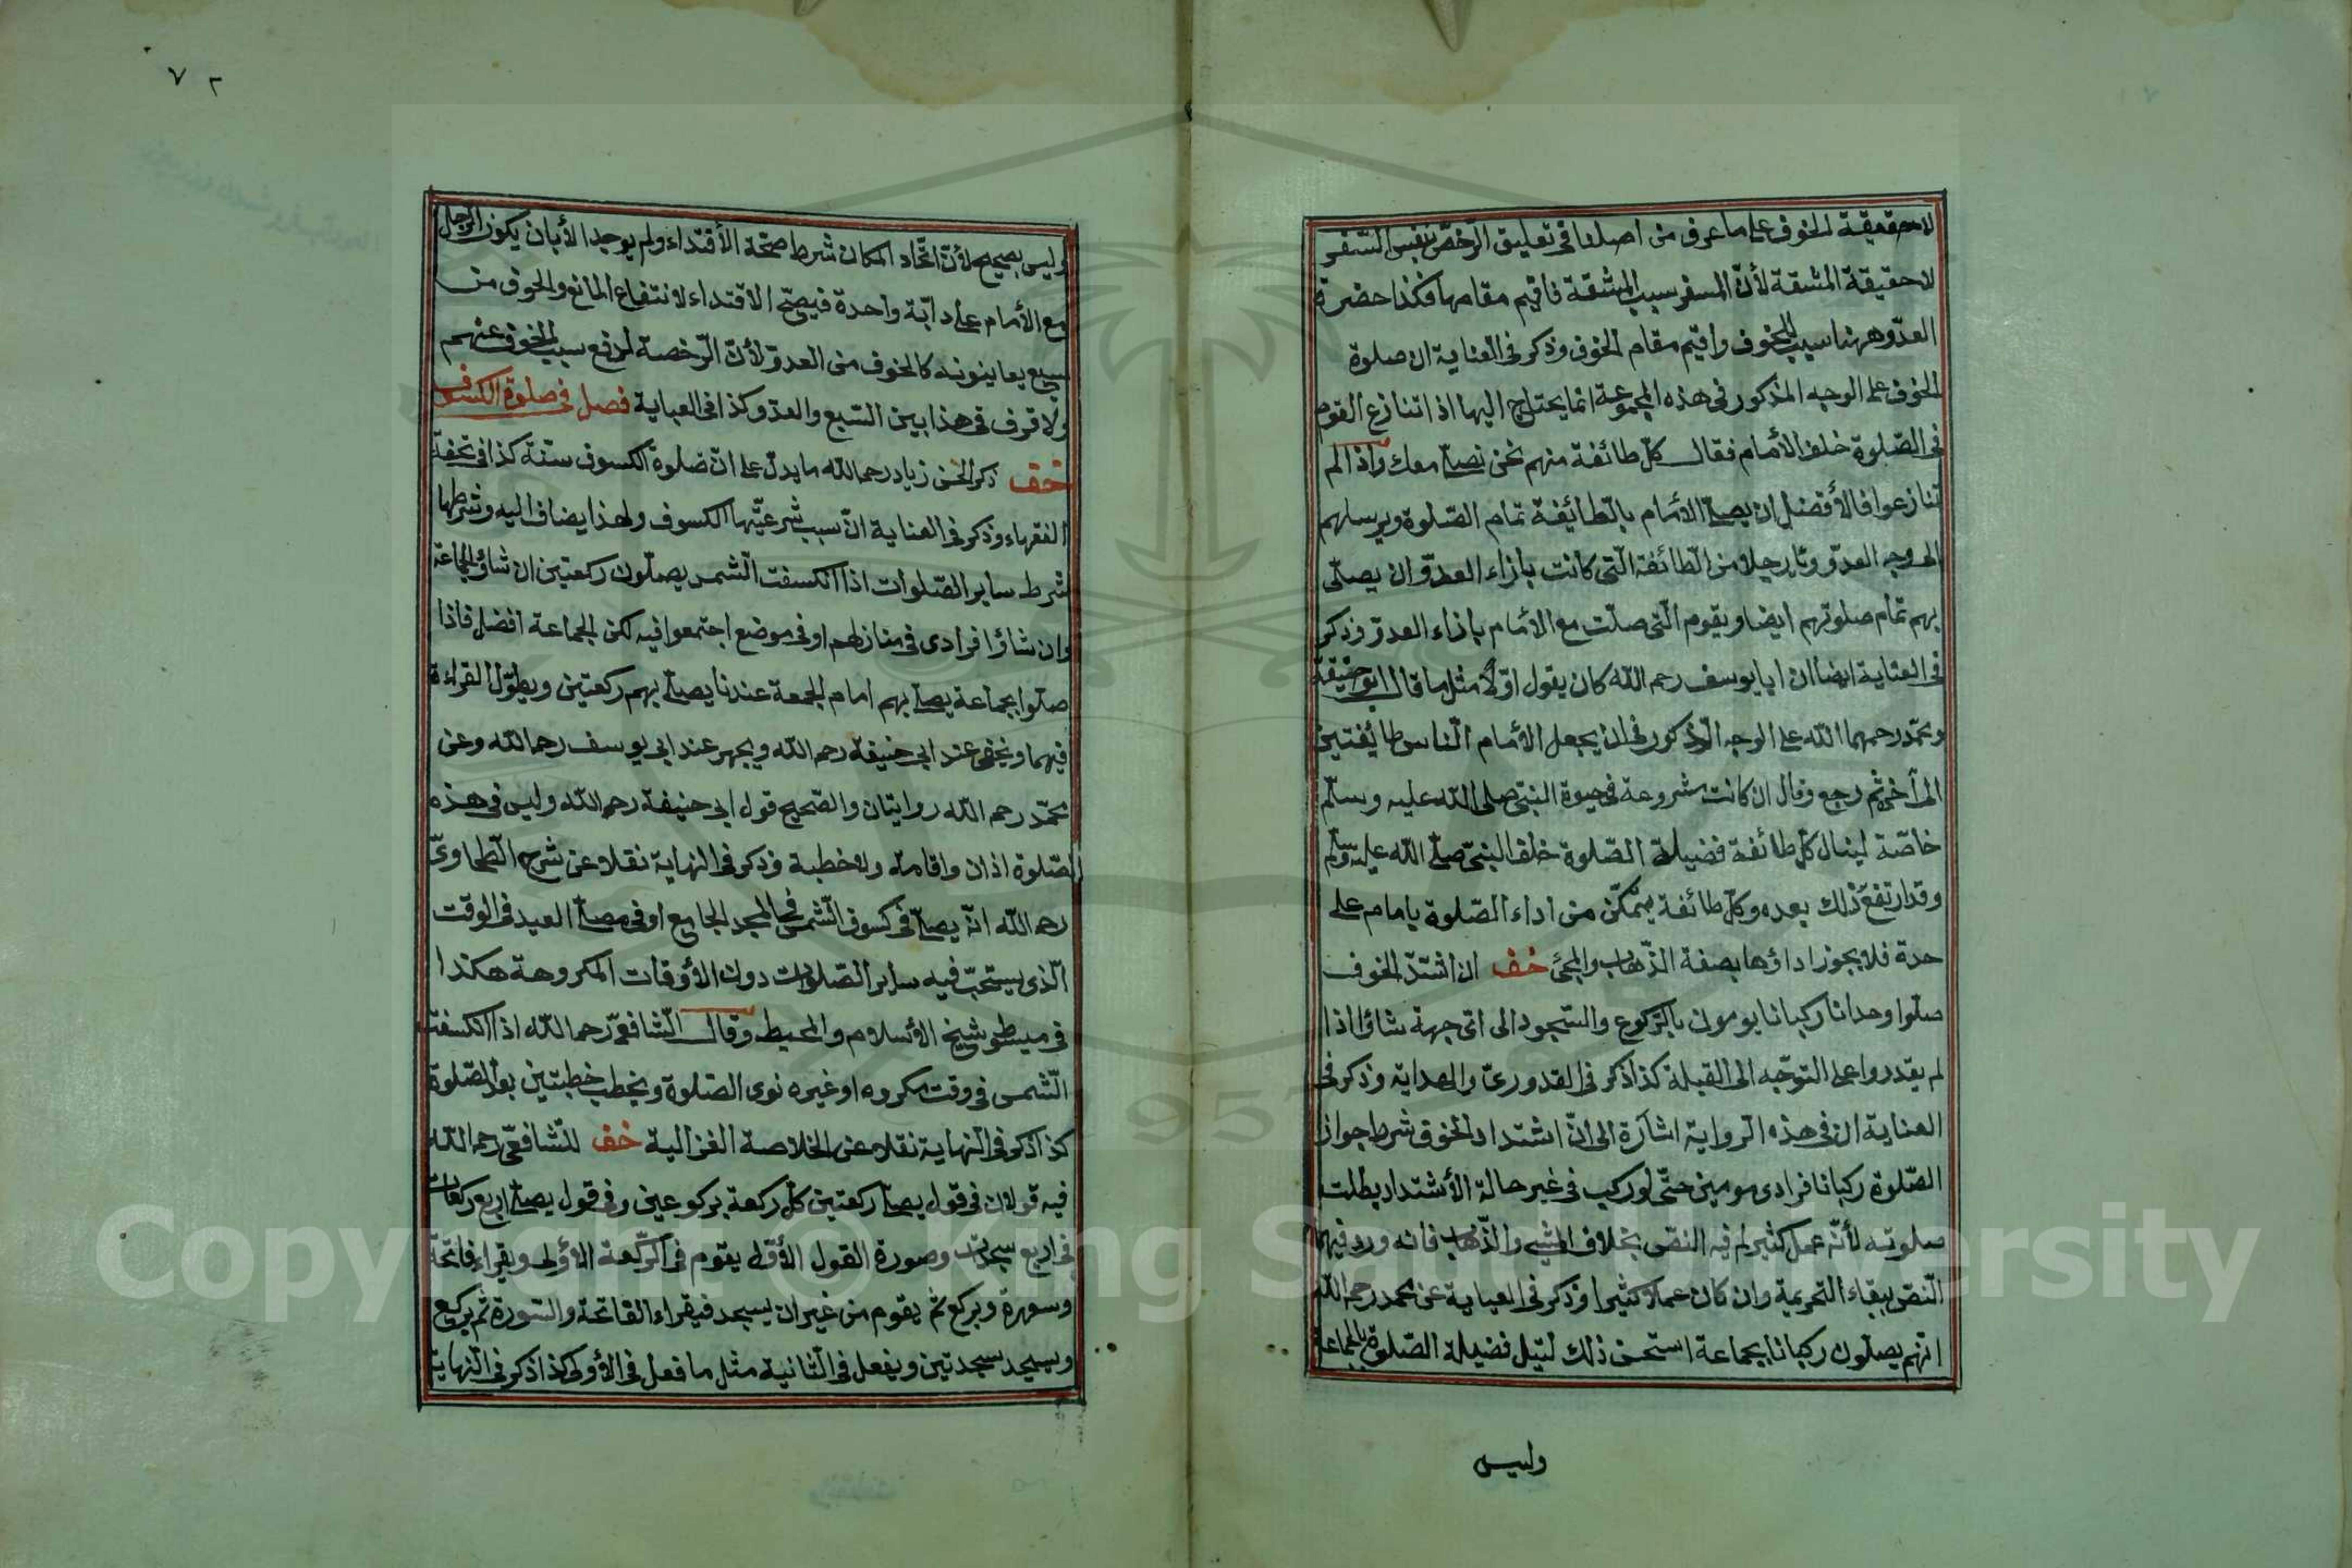 لا حقيقة الخوف على ما عرف من اصلنا فى تعليق الرّخص بنفس السّفر
لا حقيقة المشقة لأنّ السفر سبب المشقة فاقيم مقامها فكذا حضرة
العدّو ههنا سبب الخوف واقيم مقام الخوف وذكر فى العناية ان صلوة
الخوف على الوجه المذكور فى هذه المجموعة انما يحتاج اليها اذا تنازع القوم
فى الصّلوة خلف الأمام فقال كلّ طائفة منهم نحن نصلّى معك واذا لم
تنازعوا فالأفضل ان يصلّى الأمام بالطائفة تمام الصّلوة ويرسلهم
الى وجه العدّو رجلا من الطائفة التى كانت بازاء العدوّ ان يصلّى
بهم تمام صلوتهم ايضا ويقوم الّتى صلّت مع الأمام بازاء العدوّ وذكر
فى العناية ايضا ان ابا يوسف رحم الله كان يقول اوّلا مثل ما قال ابو حنيفة
ومحمّد رحمهما الله على الوجه المذكور فى ان يجعل الأمام الناس طائفتين
الى آخره ثم رجع وقال ان كانت مشروعة فى حيوة النبىّ صلى الله عليه وسلّم
خاصّة لينال كلّ طائفة فضيلة الصّلوة خلف النبىّ صلّى الله عليه وسلم
وقد ارتفع ذلك بعده وكلّ طائفة يتمكّن من اداء الصّلوة بامام على
حدة فلا يجوز اداؤها بصفة الذّهاب والمجئ خف ان اشتدّ الخوف
صلّوا وحدانا ركبانا يومون بالرّكوع والسّجود الى اىّ جهة شاؤا اذا
لم يقدروا على التوجّه الى القبلة كذا ذكر فى القدورىّ والهداية وذكر فى
العناية ان فى هذه الرواية اشارة الى انّ اشتداد الخوف شرط جواز
الصّلوة ركبانا فرادى مومين حتّى لو ركب فى غير حالة الأشتداد بطلت
صلوته لأنّه عمل كثير لم فيه النصّ بخلاف المشى والذّهاب فانه ورد فيهما
النصّ ببقاء التحريمة وان كان عملا كثيرا وذكر فى العناية عن محمد رحم الله
انهم يصلّون ركبانا بجماعة استحسن ذلك لنيل فضيلة الصّلوة بالجماعة
وليس
٧٢
وليس بصحيح لأنّ اتّحاد المكان شرط صحّة الأقتداء ولم يوجد الا بان يكون الرجل
مع الأمام على دابّة واحدة فيصحّ الاقتداء لانتفاع المانع والخوف من
سبع يعاينونه كالخوف من العدوّ لأنّ الرّخصة لدفع سبب الخوف عنهم
ولا فرق فى هذا بين السّبع والعدّو كذا فى العناية فصل فى صلوة الكسوف
خف ذكر الحسن زياد رحمه الله ما يدلّ على انّ صلوة الكسوف سنّة كذا فى تحفة
الفقهاء وذكر فى العناية انّ سبب شرعيّتها الكسوف ولهذا يضاف اليه وشرطها
شرط ساير الصّلوات اذا انكسفت الشّمس يصلّون ركعتين ان شاؤا بجماعة
وان شاؤا فرادى فى منازلهم او فى موضع اجتمعوا فيه لكن الجماعة افضل فاذا
صلّوا بجماعة يصلّى بهم امام الجمعة عندنا يصلّى بهم ركعتين ويطوّل القراءة
فيهما ويخفى عند ابى حنيفة رحم الله ويجهر عند ابى يوسف رحم الله وعن
محمّد رحم الله روايتان والصّحيح قول ابى حنيفة رحم الله وليس فى هذه
الصّلوة اذان واقامة ولا خطبة وذكر فى النهاية نقلا عن شرح الطّحاوىّ
رحم الله انّه يصلّى فى كسوف الشّمس فى المسجد الجامع او فى مصلّى العيد فى الوقت
الّذى يستحبّ فيه ساير الصّلوات دون الأوقات المكروهة هكذا
فى مبسوط شيخ الأسلام والمحيط وقال الشّافعىّ رحم الله اذا انكسفت
الشّمس فى وقت مكروه او غيره نوى الصّلوة ويخطب خطبتين بعد الصّلوة
كذا ذكر فى النّهاية نقلا عن الخلاصة الغزالية خف للشّافعىّ رحم الله
فيه قولان فى قول يصلّى ركعتين كلّ ركعة بركوعين وفى قول يصلّى اربع ركعات
فى اربع سجدات وصورة القول الأوّل يقوم فى الرّكعة الأولى ويقراء فاتحة
وسورة ويركع ثم يقوم من غير ان يسجد فيقراء الفاتحة والسّورة ثم يركع
ويسجد سجدتين ويفعل فى الثّانية مثل ما فعل فى الأولى كذا ذكر فى النّهاية
Copyright © King Saud University